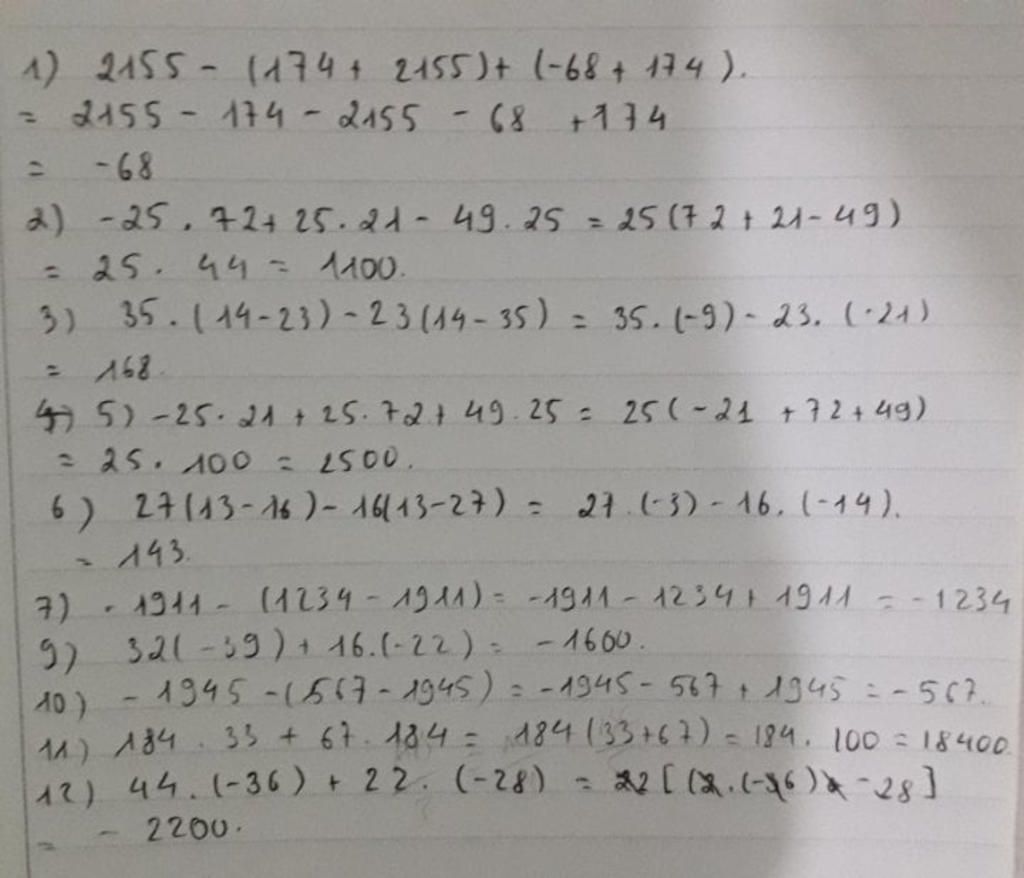 1) 2155 - (174 + 2155) + (-68 + 174).
= 2155 - 174 - 2155 - 68 + 174
= -68
2) -25 . 72 + 25 . 21 - 49 . 25 = 25(72 + 21 - 49)
= 25 . 44 = 1100.
3) 35 . (14 - 23) - 23(14 - 35) = 35 . (-9) - 23 . (-21)
= 168.
5) -25 . 21 + 25 . 72 + 49 . 25 = 25(-21 + 72 + 49)
= 25 . 100 = 2500.
6) 27(13 - 16) - 16(13 - 27) = 27 . (-3) - 16 . (-14).
= 143.
7) -1911 - (1234 - 1911) = -1911 - 1234 + 1911 = -1234
9) 32(-39) + 16.(-22) = -1600.
10) -1945 - (567 - 1945) = -1945 - 567 + 1945 = -567.
11) 184 . 33 + 67 . 184 = 184(33+67) = 184 . 100 = 18400.
12) 44 . (-36) + 22 . (-28) = 22[(2.(-36) - 28]
= -2200.